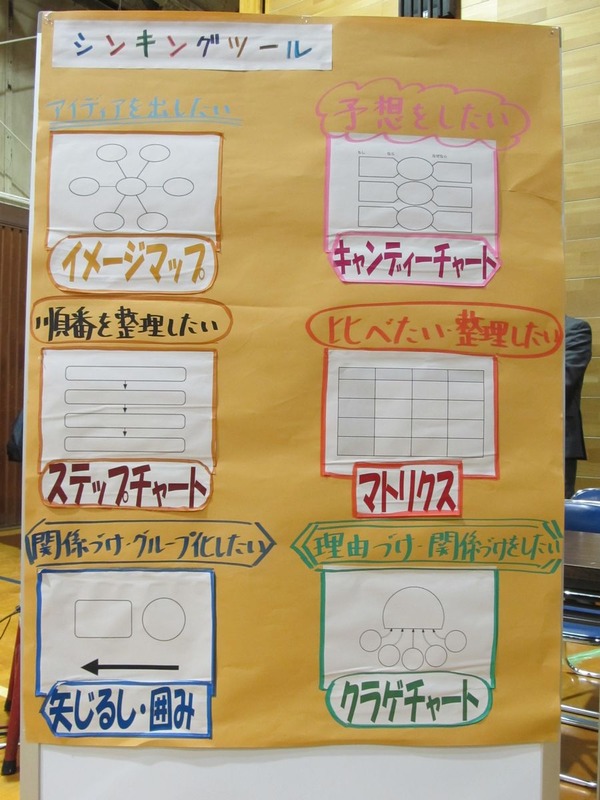 シンキングツール
アイディアを出したい
予想をしたい
イメージマップ
キャンディーチャート
順番を整理したい
比べたい・整理したい
ステップチャート
マトリクス
関係づけ・グループ化したい
理由づけ・関係づけをしたい
矢じるし・囲み
クラゲチャート